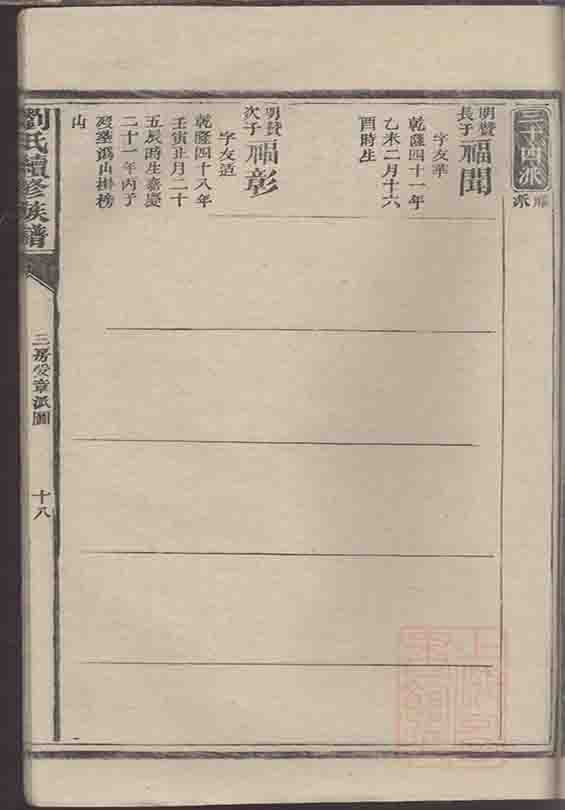 三十四派
明贊長子
福聞
字友華
乾隆四十一年
乙未二月十六
酉時生
明贊次子
福彰
字友适
乾隆四十八年
壬寅正月二十
五辰時生嘉慶
二十一年丙子
歿塟溈山掛榜
山
劉氏續修族譜
三房受章派圖
十八